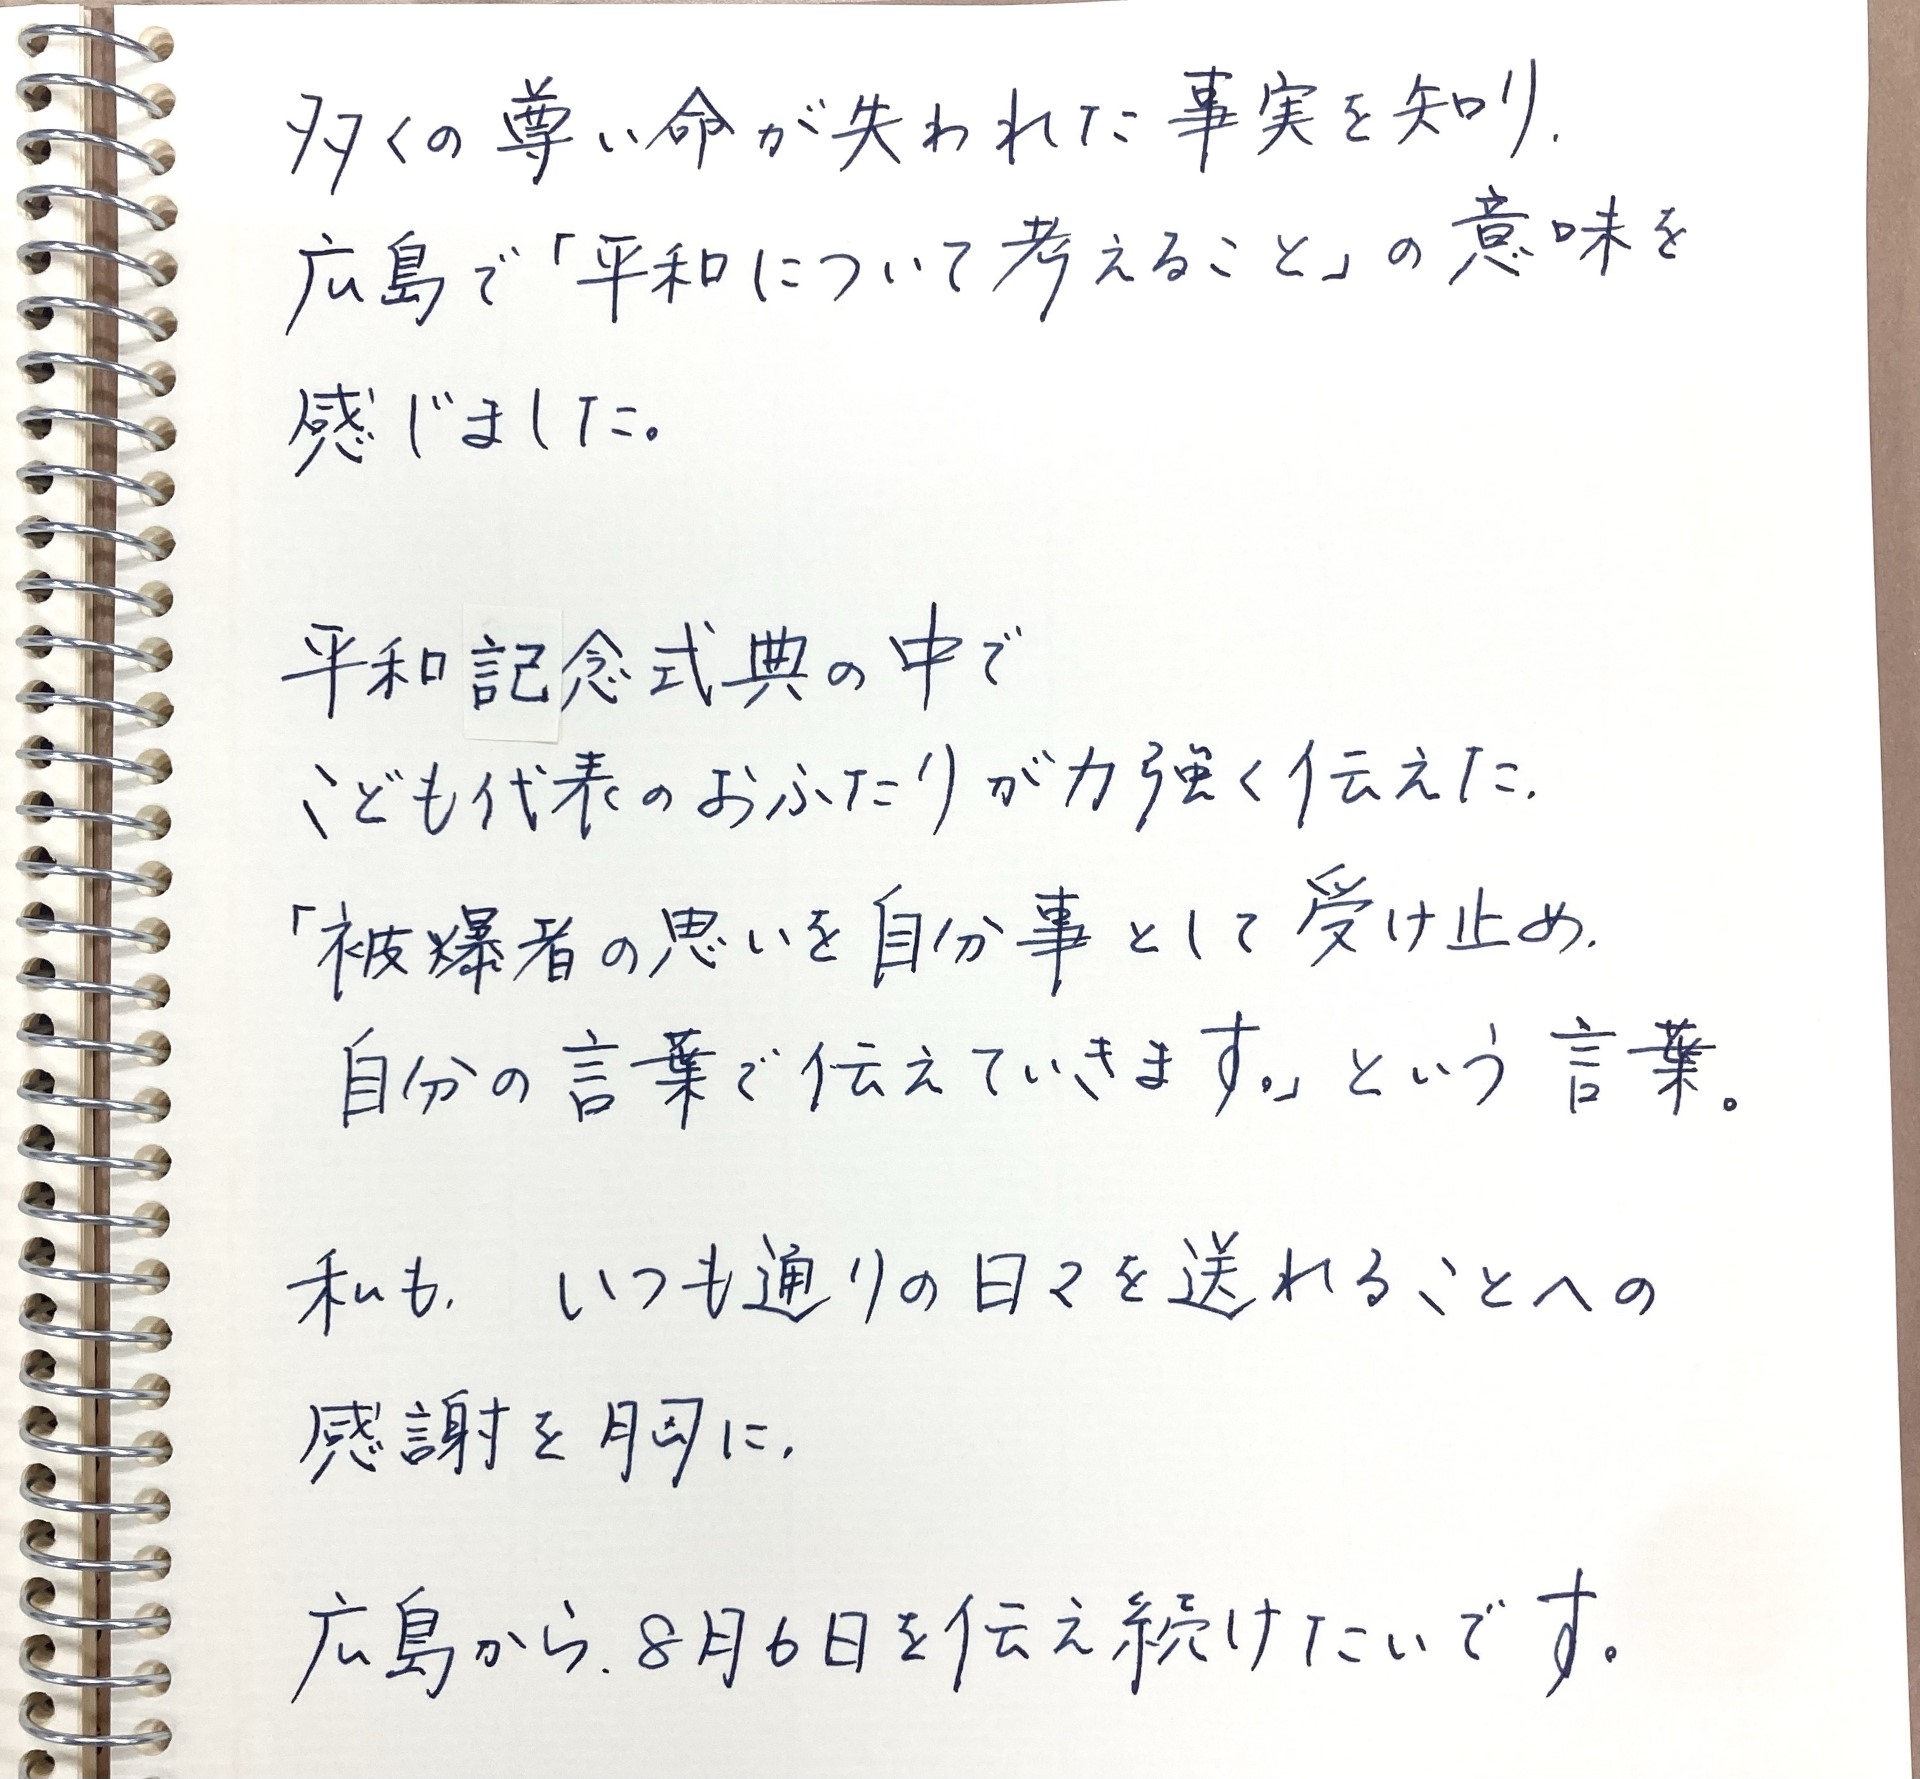 多くの尊い命が失われた事実を知り、
広島で「平和について考えること」の意味を
感じました。
平和記念式典の中で
こども代表のおふたりが力強く伝えた、
「被爆者の思いを自分事として受け止め、
自分の言葉で伝えていきます。」という言葉。
私も、いつも通りの日々を送れることへの
感謝を胸に、
広島から、8月6日を伝え続けたいです。